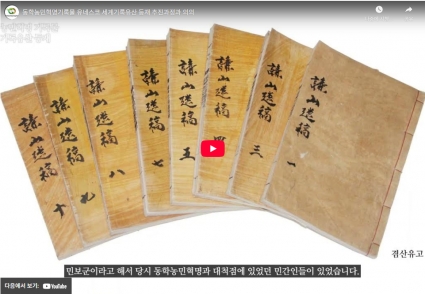 동학농민혁명기록물 유네스코 세계기록유산 등재 추진과정과 의의
謙山遺稿 十
謙山遺稿 九
謙山遺稿 八
謙山遺稿 七
謙山遺稿 五
謙山遺稿 四
謙山遺稿 三
謙山遺稿 一
겸산유고
민보군이라고 해서 당시 동학농민혁명과 대척점에 있었던 민간인들이 있었습니다.
다음에서 보기: YouTube